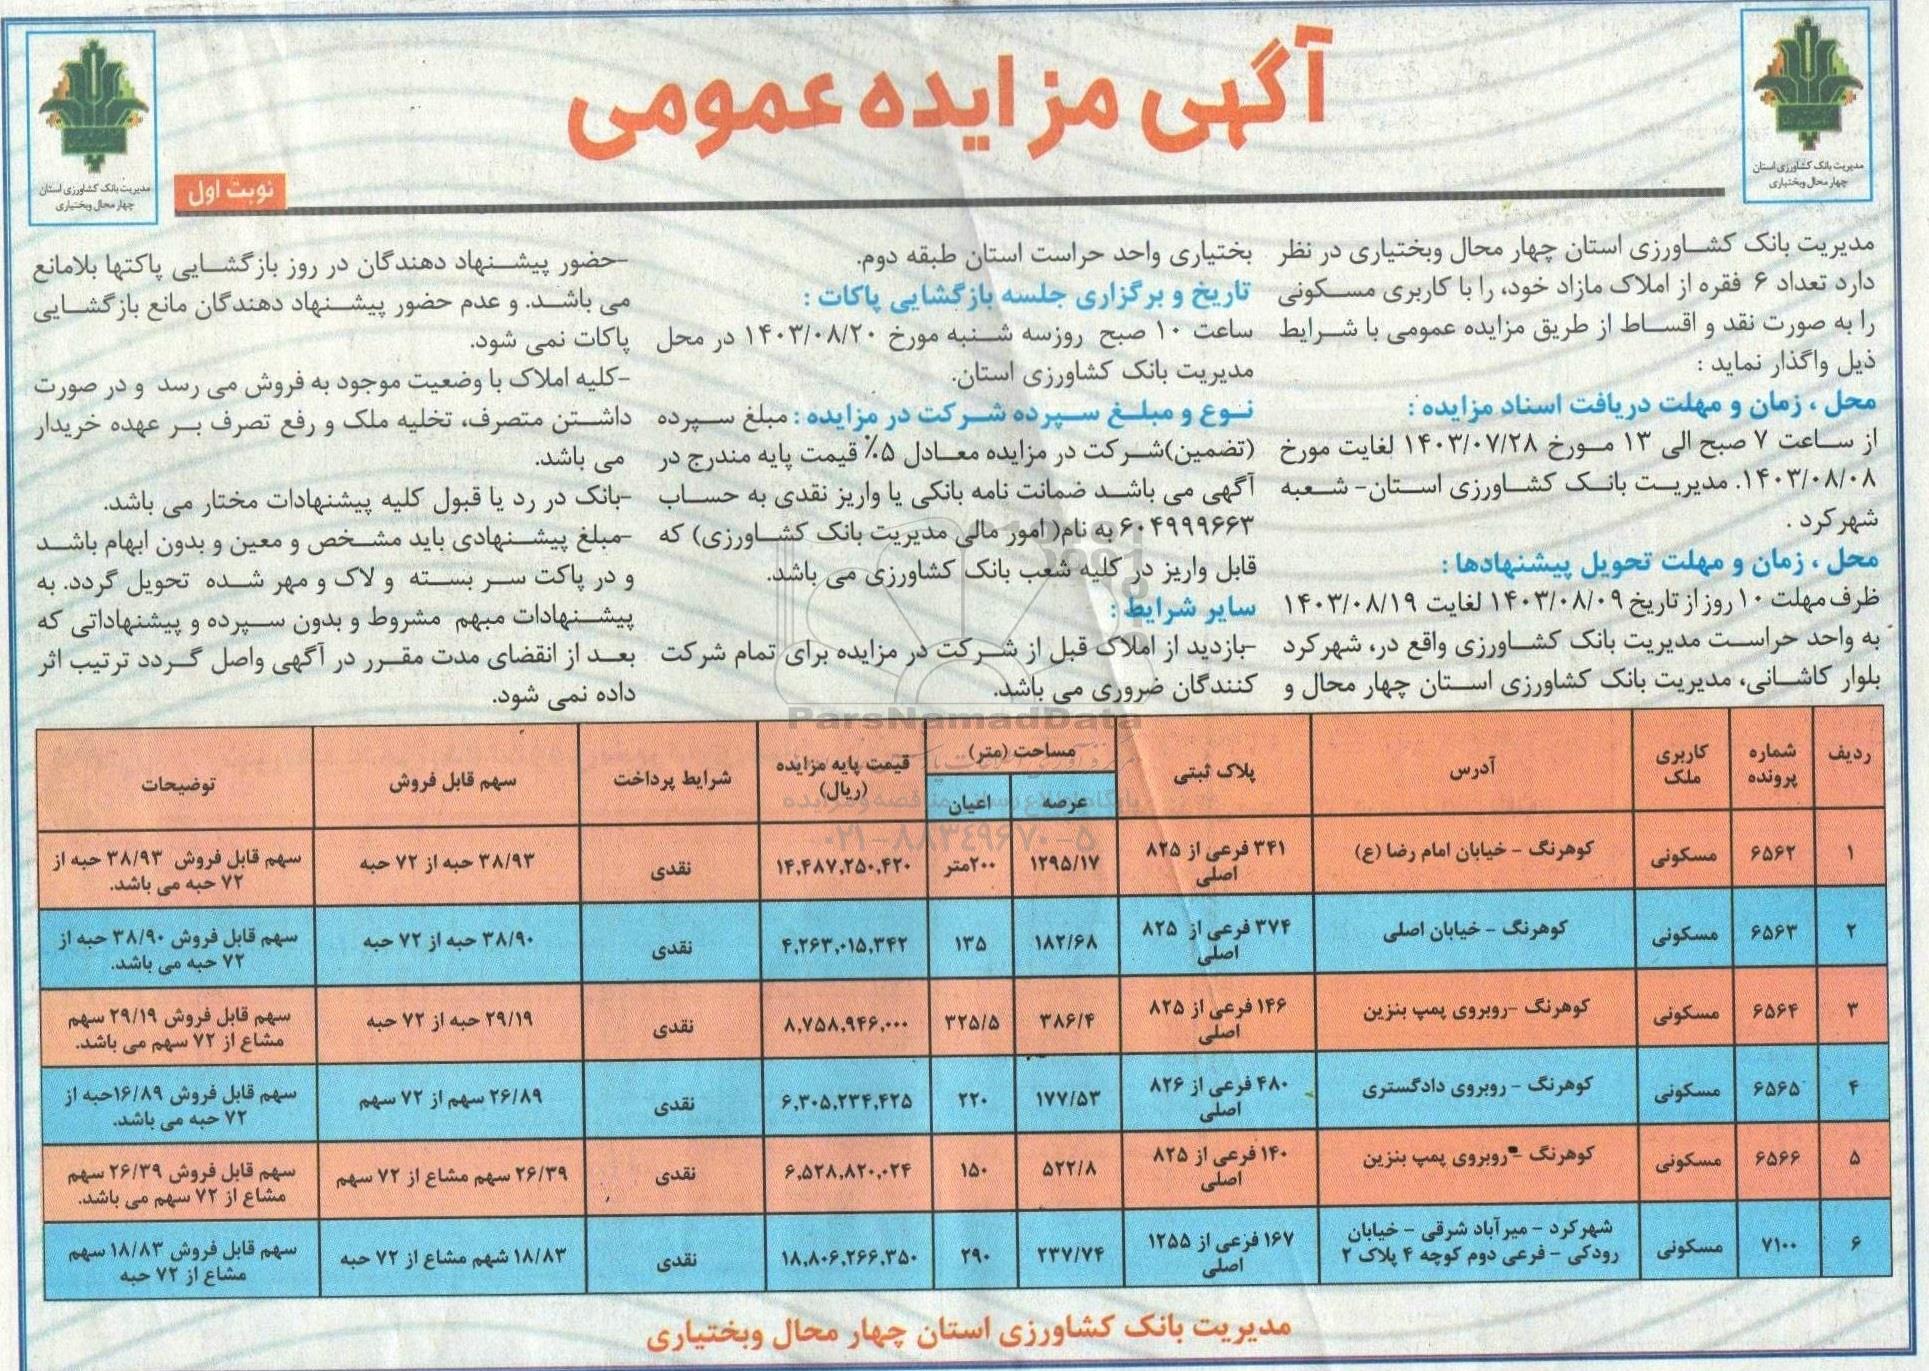 آگهی مزایده عمومی
نوبت اول
مدیریت بانک کشاورزی استان
چهار محال وبختیاری
مدیریت بانک کشاورزی استان
چهار محال وبختیاری
مدیریت بانک کشاورزی استان چهار محال وبختیاری در نظر
دارد تعداد ۶ فقره از املاک مازاد خود، را با کاربری مسکونی
را به صورت نقد و اقساط از طریق مزایده عمومی با شرایط
ذیل واگذار نماید :
محل ، زمان و مهلت دریافت اسناد مزایده :
از ساعت ۷ صبح الی ۱۳ مورخ ۱۴۰۳/۰۷/۲۸ لغایت مورخ
۱۴۰۳/۰۸/۰۸. مدیریت بانک کشاورزی استان- شعبه
شهرکرد .
محل ، زمان و مهلت تحویل پیشنهادها :
ظرف مهلت ۱۰ روز از تاریخ ۱۴۰۳/۰۸/۰۹ لغایت ۱۴۰۳/۰۸/۱۹
به واحد حراست مدیریت بانک کشاورزی واقع در، شهرکرد
بلوار کاشانی، مدیریت بانک کشاورزی استان چهار محال و
بختیاری واحد حراست استان طبقه دوم.
تاریخ و برگزاری جلسه بازگشایی پاکات :
ساعت ۱۰ صبح روزسه شنبه مورخ ۱۴۰۳/۰۸/۲۰ در محل
مدیریت بانک کشاورزی استان.
نوع و مبلغ سپرده شرکت در مزایده : مبلغ سپرده
(تضمین)شرکت در مزایده معادل ۵٪ قیمت پایه مندرج در
آگهی می باشد ضمانت نامه بانکی یا واریز نقدی به حساب
۶۰۴۹۹۹۶۶۳ به نام( امور مالی مدیریت بانک کشاورزی) که
قابل واریز در کلیه شعب بانک کشاورزی می باشد.
سایر شرایط :
-بازدید از املاک قبل از شرکت در مزایده برای تمام شرکت
کنندگان ضروری می باشد.
-حضور پیشنهاد دهندگان در روز بازگشایی پاکتها بلامانع
می باشد. و عدم حضور پیشنهاد دهندگان مانع بازگشایی
پاکات نمی شود.
-کلیه املاک با وضعیت موجود به فروش می رسد و در صورت
داشتن متصرف، تخلیه ملک و رفع تصرف بر عهده خریدار
می باشد.
-بانک در رد یا قبول کلیه پیشنهادات مختار می باشد.
-مبلغ پیشنهادی باید مشخص و معین و بدون ابهام باشد
و در پاکت سر بسته و لاک و مهر شده تحویل گردد. به
پیشنهادات مبهم مشروط و بدون سپرده و پیشنهاداتی که
بعد از انقضای مدت مقرر در آگهی واصل گردد ترتیب اثر
داده نمی شود.
ParsNamadData
پایگاه اطلاع رسانی مناقصه و مزایده
۰۲۱-۸۸۳۴۹۶۷۰-۵
ردیف شماره پرونده کاربری ملک آدرس پلاک ثبتی مساحت (متر) عرصه اعیان قیمت پایه مزایده (ریال) شرایط پرداخت سهم قابل فروش توضیحات
۱ ۶۵۶۲ مسکونی کوهرنگ - خیابان امام رضا (ع) ۳۴۱ فرعی از ۸۲۵ اصلی ۱۲۹۵/۱۷ ۲۰۰متر ۱۴,۴۸۷,۲۵۰,۴۲۰ نقدی ۳۸/۹۳ حبه از ۷۲ حبه سهم قابل فروش ۳۸/۹۳ حبه از ۷۲ حبه می باشد.
۲ ۶۵۶۳ مسکونی کوهرنگ - خیابان اصلی ۳۷۴ فرعی از ۸۲۵ اصلی ۱۸۲/۶۸ ۱۳۵ ۴,۲۶۳,۰۱۵,۳۴۲ نقدی ۳۸/۹۰ حبه از ۷۲ حبه سهم قابل فروش ۳۸/۹۰ حبه از ۷۲ حبه می باشد.
۳ ۶۵۶۴ مسکونی کوهرنگ -روبروی پمپ بنزین ۱۴۶ فرعی از ۸۲۵ اصلی ۳۸۶/۴ ۳۲۵/۵ ۸,۷۵۸,۹۴۶,۰۰۰ نقدی ۲۹/۱۹ حبه از ۷۲ حبه سهم قابل فروش ۲۹/۱۹ سهم مشاع از ۷۲ سهم می باشد.
۴ ۶۵۶۵ مسکونی کوهرنگ - روبروی دادگستری ۴۸۰ فرعی از ۸۲۶ اصلی ۱۷۷/۵۳ ۲۲۰ ۶,۳۰۵,۲۳۴,۴۲۵ نقدی ۲۶/۸۹ سهم از ۷۲ سهم سهم قابل فروش ۱۶/۸۹حبه از ۷۲ حبه می باشد.
۵ ۶۵۶۶ مسکونی کوهرنگ - روبروی پمپ بنزین ۱۴۰ فرعی از ۸۲۵ اصلی ۵۲۲/۸ ۱۵۰ ۶,۵۲۸,۸۲۰,۰۲۴ نقدی ۲۶/۳۹ سهم مشاع از ۷۲ سهم سهم قابل فروش ۲۶/۳۹ سهم مشاع از ۷۲ سهم می باشد.
۶ ۷۱۰۰ مسکونی شهرکرد - میرآباد شرقی - خیابان رودکی - فرعی دوم کوچه ۴ پلاک ۲ ۱۶۷ فرعی از ۱۲۵۵ اصلی ۲۳۷/۷۴ ۲۹۰ ۱۸,۸۰۶,۲۶۶,۳۵۰ نقدی ۱۸/۸۳ شهم مشاع از ۷۲ حبه سهم قابل فروش ۱۸/۸۳ سهم مشاع از ۷۲ حبه
مدیریت بانک کشاورزی استان چهار محال وبختیاری